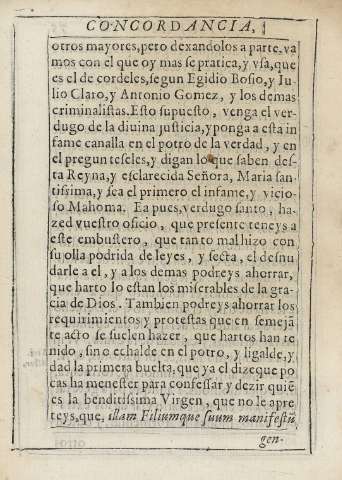 CONCORDANCIA,
otros mayores, pero dexandolos a parte, va
mos con el que oy mas se pratica, y vsa, que
es el de cordeles, segun Egidio Bosio, y Iu
lio Claro, y Antonio Gomez, y los demas
criminalistas. Esto supuesto, venga el ver-
dugo de la diuina justicia, y ponga a esta in
fame canalla en el potro de la verdad, y en
el pregunteseles, y digan lo que saben des-
ta Reyna, y esclarecida Señora, Maria san-
tissima, y sea el primero el infame, y vicio-
so Mahoma. Ea pues, verdugo santo, ha-
zed vuestro oficio, que presente teneys a
este embustero, que tanto mal hizo con
su olla podrida de leyes, y secta, el desnu
darle a el, y a los demas podreys ahorrar,
que harto lo estan los miserables de la gra-
cia de Dios. Tambien podreys ahorrar los
requirimientos y protestas que en semejã
te acto se suelen hazer, que hartos han te
nido, sino echalde en el potro, y ligalde, y
dad la primera buelta, que ya el dize que po
cas ha menester para confessar y dezir quiẽ
es la benditissima Virgen, que no le apre
teys, que, illam Filiumque suum manifestũ
gen-